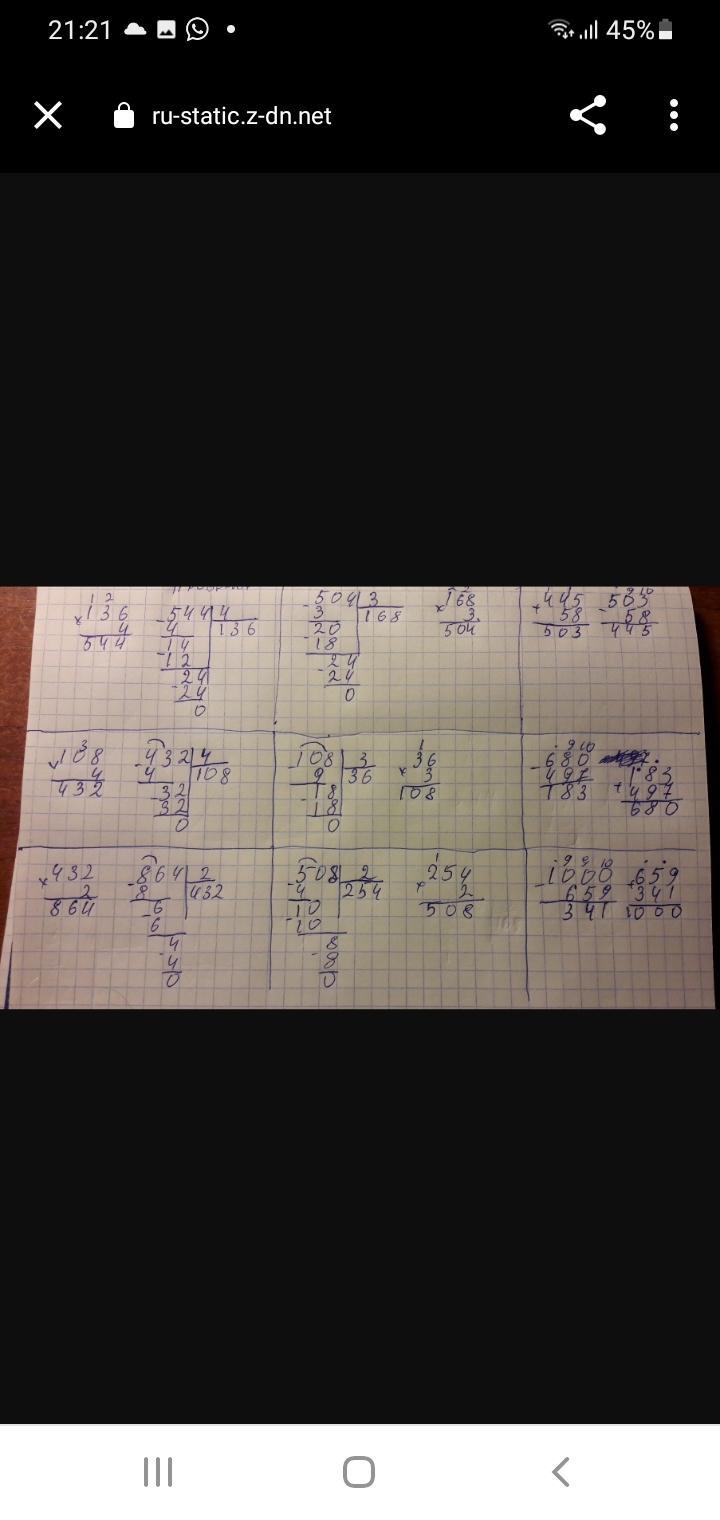 21:21
45%
ru-static.z-dn.net
1 2
×136
4
544
-544 4
4 136
-14
12
-24
24
0
-504 3
3 168
-20
18
-24
24
0
×168
3
504
+445
58
503
-503
58
445
3
×108
4
432
-432 4
4 108
-32
32
0
-108 3
9 36
-18
18
0
1
×36
3
108
9 10
-680
497
183
183
+497
680
×432
2
864
-864 2
8 432
-6
6
-4
4
0
-508 2
4 254
-10
10
-8
8
0
1
×254
2
508
9 9 10
-1000
659
341
+659
341
1000